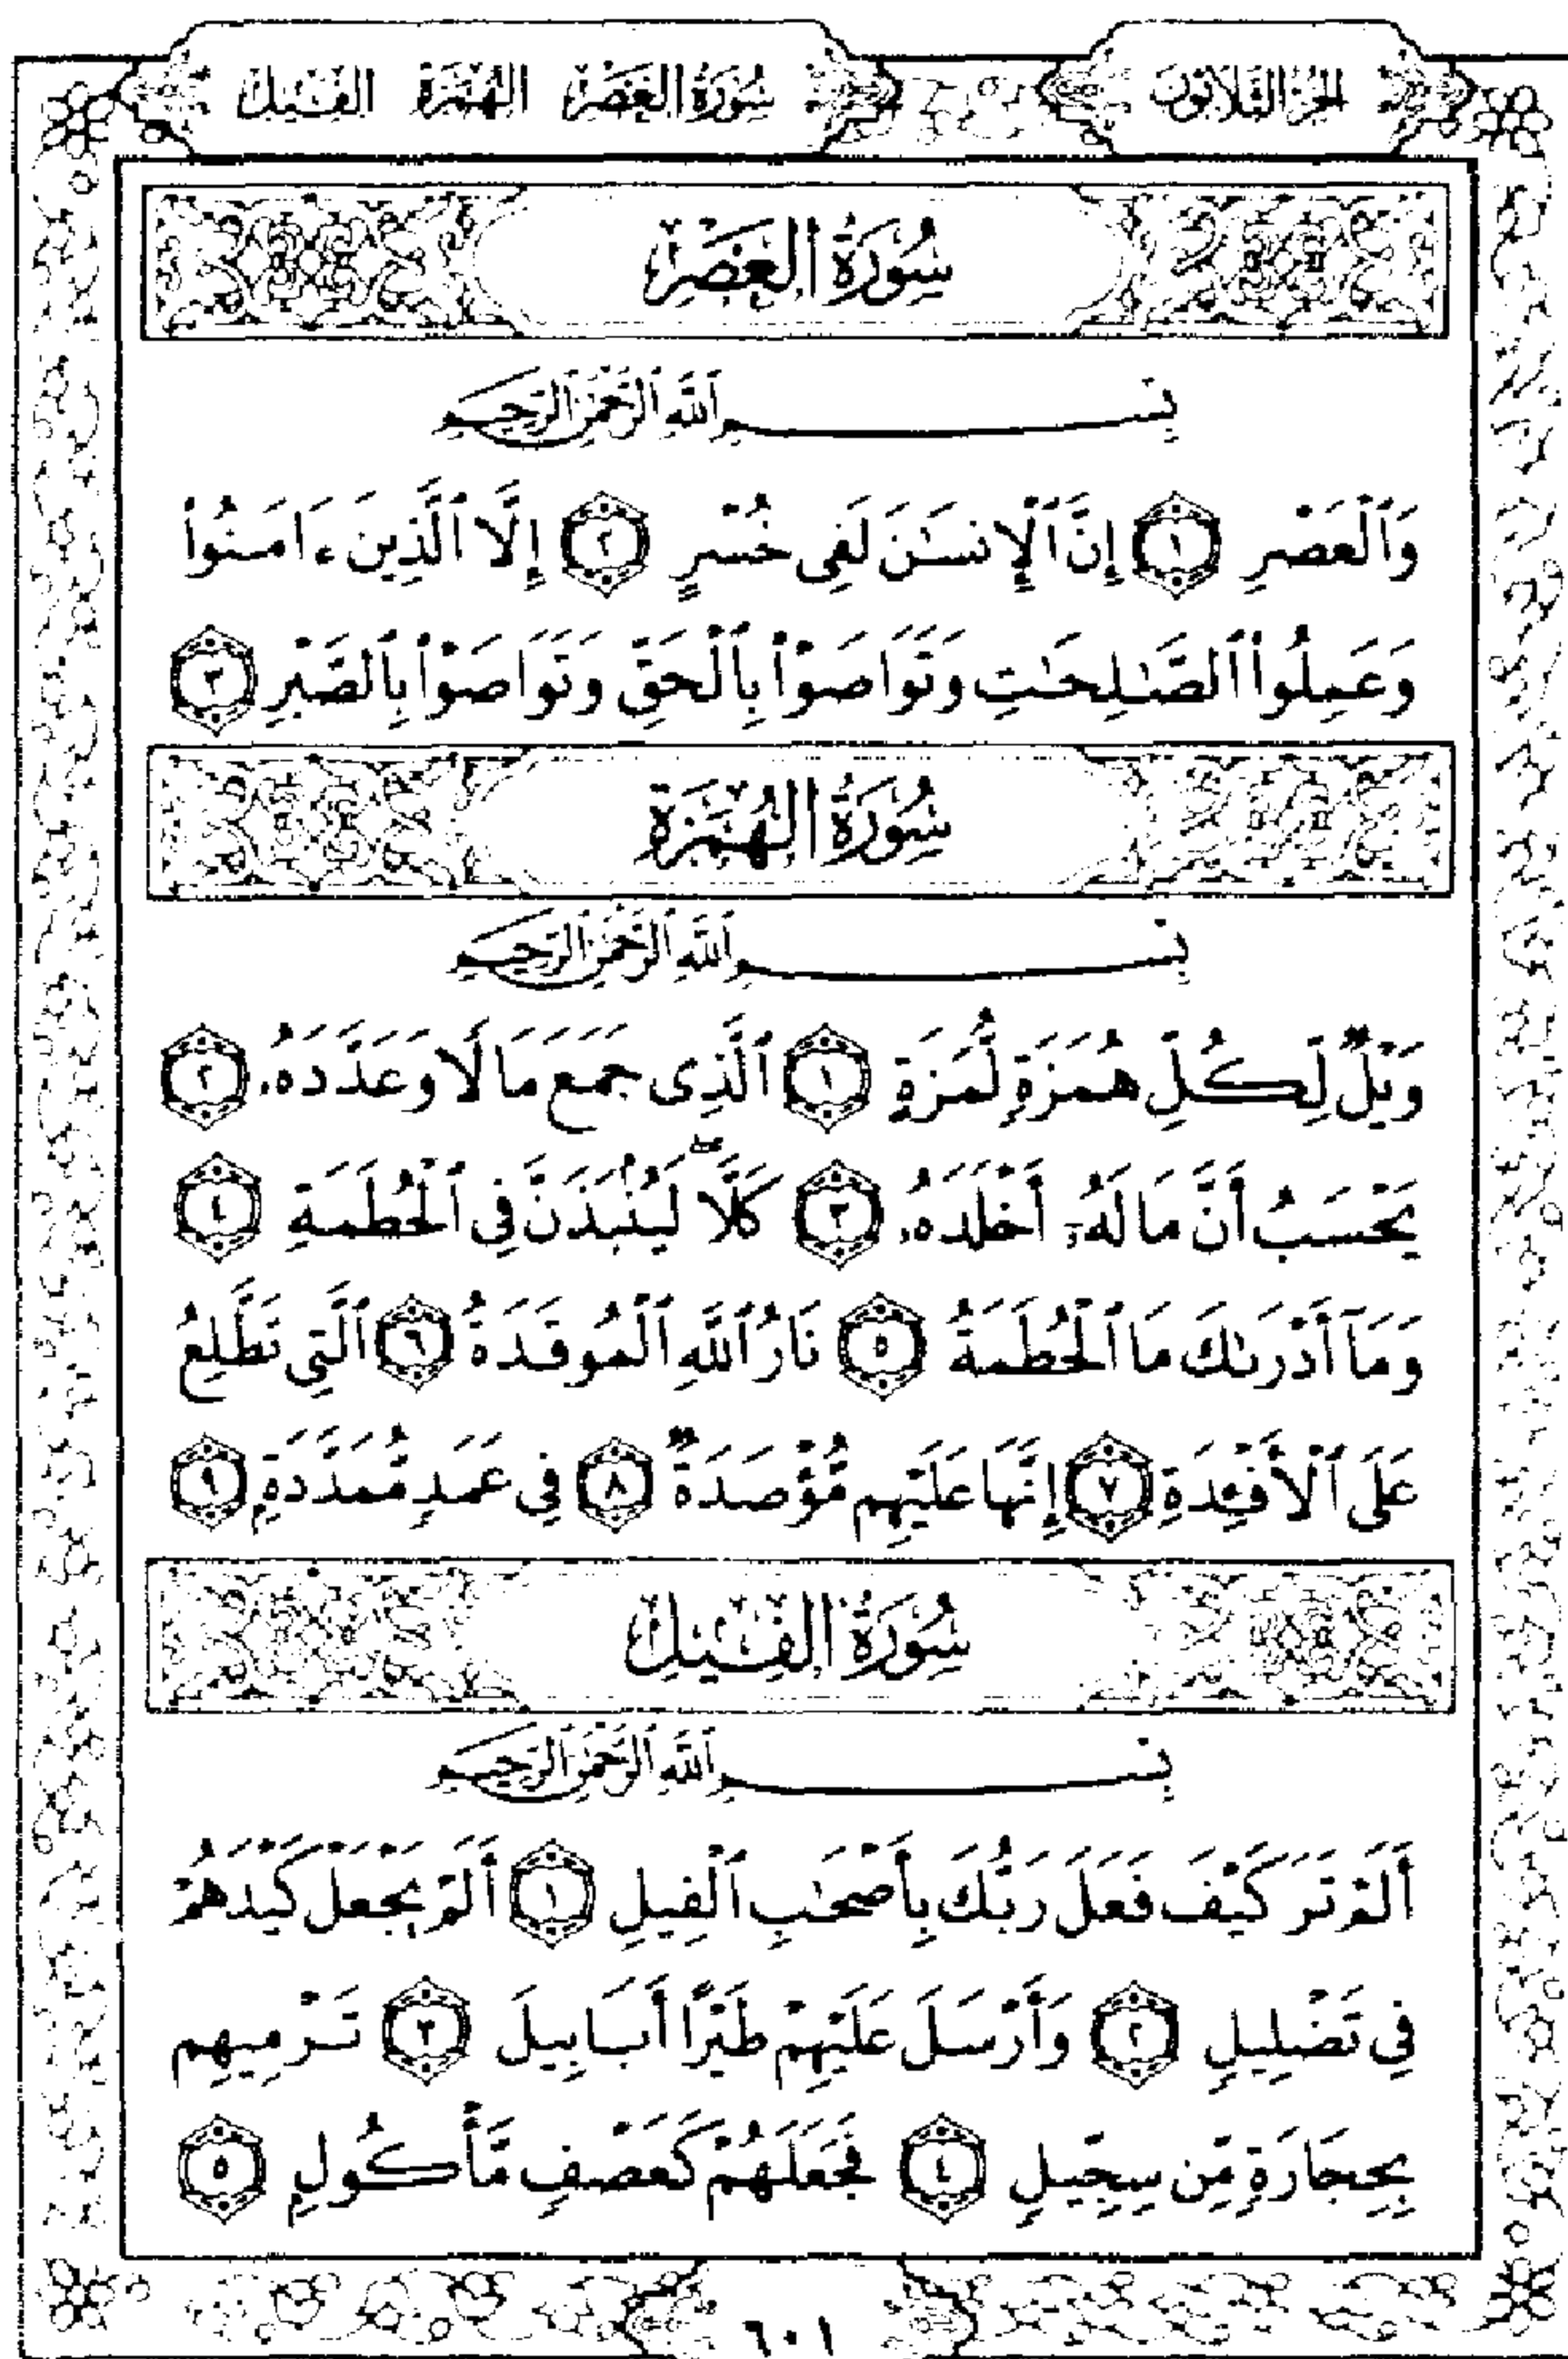 الجزء الثلاثون
سورة العصر الهمزة الفيل
سُورَةُ الْعَصْرِ
بِسْمِ ٱللَّهِ ٱلرَّحْمَٰنِ ٱلرَّحِيمِ
وَٱلْعَصْرِ ١ إِنَّ ٱلْإِنسَـٰنَ لَفِى خُسْرٍ ٢ إِلَّا ٱلَّذِينَ ءَامَنُوا۟
وَعَمِلُوا۟ ٱلصَّـٰلِحَـٰتِ وَتَوَاصَوْا۟ بِٱلْحَقِّ وَتَوَاصَوْا۟ بِٱلصَّبْرِ ٣
سُورَةُ الْهُمَزَةِ
بِسْمِ ٱللَّهِ ٱلرَّحْمَٰنِ ٱلرَّحِيمِ
وَيْلٌ لِّكُلِّ هُمَزَةٍ لُّمَزَةٍ ١ ٱلَّذِى جَمَعَ مَالًا وَعَدَّدَهُۥ ٢
يَحْسَبُ أَنَّ مَالَهُۥٓ أَخْلَدَهُۥ ٣ كَلَّا ۖ لَيُنۢبَذَنَّ فِى ٱلْحُطَمَةِ ٤
وَمَآ أَدْرَىٰكَ مَا ٱلْحُطَمَةُ ٥ نَارُ ٱللَّهِ ٱلْمُوقَدَةُ ٦ ٱلَّتِى تَطَّلِعُ
عَلَى ٱلْأَفْـِٔدَةِ ٧ إِنَّهَا عَلَيْهِم مُّؤْصَدَةٌ ٨ فِى عَمَدٍ مُّمَدَّدَةٍۭ ٩
سُورَةُ الْفِيلِ
بِسْمِ ٱللَّهِ ٱلرَّحْمَٰنِ ٱلرَّحِيمِ
أَلَمْ تَرَ كَيْفَ فَعَلَ رَبُّكَ بِأَصْحَـٰبِ ٱلْفِيلِ ١ أَلَمْ يَجْعَلْ كَيْدَهُمْ
فِى تَضْلِيلٍ ٢ وَأَرْسَلَ عَلَيْهِمْ طَيْرًا أَبَابِيلَ ٣ تَرْمِيهِم
بِحِجَارَةٍ مِّن سِجِّيلٍ ٤ فَجَعَلَهُمْ كَعَصْفٍ مَّأْكُولٍۭ ٥
٦٠١